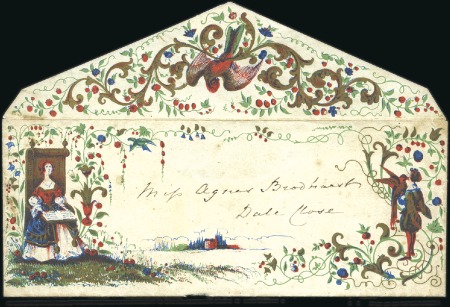 Miss Agnes Broadhurst
Dale Close